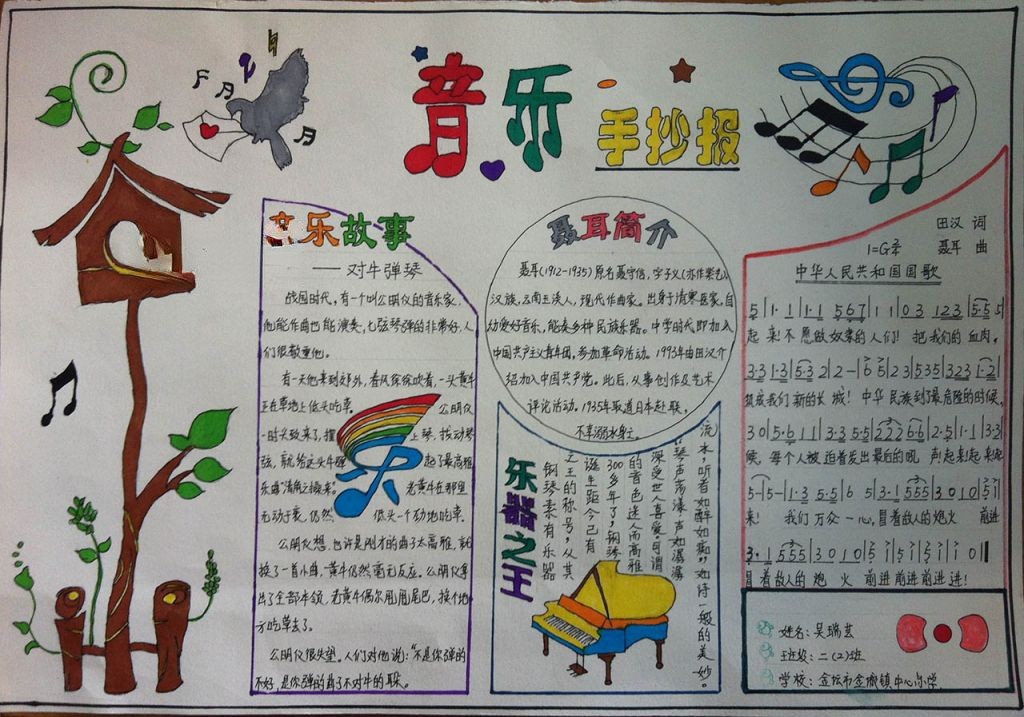 音乐
手抄报
音乐故事
——对牛弹琴
战国时代,有一个叫公明仪的音乐家,
他能作曲也能演奏,七弦琴弹的非常好,人
们很敬重他。
有一天他来到郊外,春风徐徐吹着,一头黄牛
正在草地上低头吃草。公明仪
一时兴致来了,摆上琴,拨动琴
弦,就给这头牛弹起了最高雅
乐曲“清角之操来”。老黄牛在那里
无动于衷,仍然低头一个劲地吃草。
公明仪想,也许是刚才的曲子太高雅,就
换了一首小曲,黄牛仍然毫无反应。公明仪拿
出了全部本领,老黄牛偶尔甩甩尾巴,换个地
方吃草去了。
公明仪很失望。人们对他说:“不是你弹的
不好,是你弹的曲子不对牛的耳。
聂耳简介
聂耳(1912-1935)原名聂守信,字子义(亦作紫艺)
汉族,云南玉溪人,现代作曲家。出身于清寒医家,自
幼爱好音乐,能奏多种民族乐器。中学时代即加入
中国共产主义青年团,参加革命活动。1993年由田汉介
绍加入中国共产党。此后,从事创作及艺术
评论活动。1935年取道日本赴联,
不幸溺水身亡。
乐器之王
钢琴素有乐器
之王的称号,从其
诞生距今已有
300多年了,钢琴
的音色迷人而高雅
深受世人喜爱,可谓
“琴声荡漾,声如潺潺
流水,听者如醉如痴”,如诗一般的美妙。
田汉 词
1=G 聂耳 曲
中华人民共和国国歌
起来!不愿做奴隶的人们!把我们的血肉,
筑成我们新的长城!中华民族到了最危险的时候,
每个人被迫着发出最后的吼声!起来!起来!起
来!我们万众一心,冒着敌人的炮火 前进
冒着敌人的炮火 前进前进前进进!
姓名:吴瑞芸
班级:二(2)班
学校:金坛市金城镇中心小学